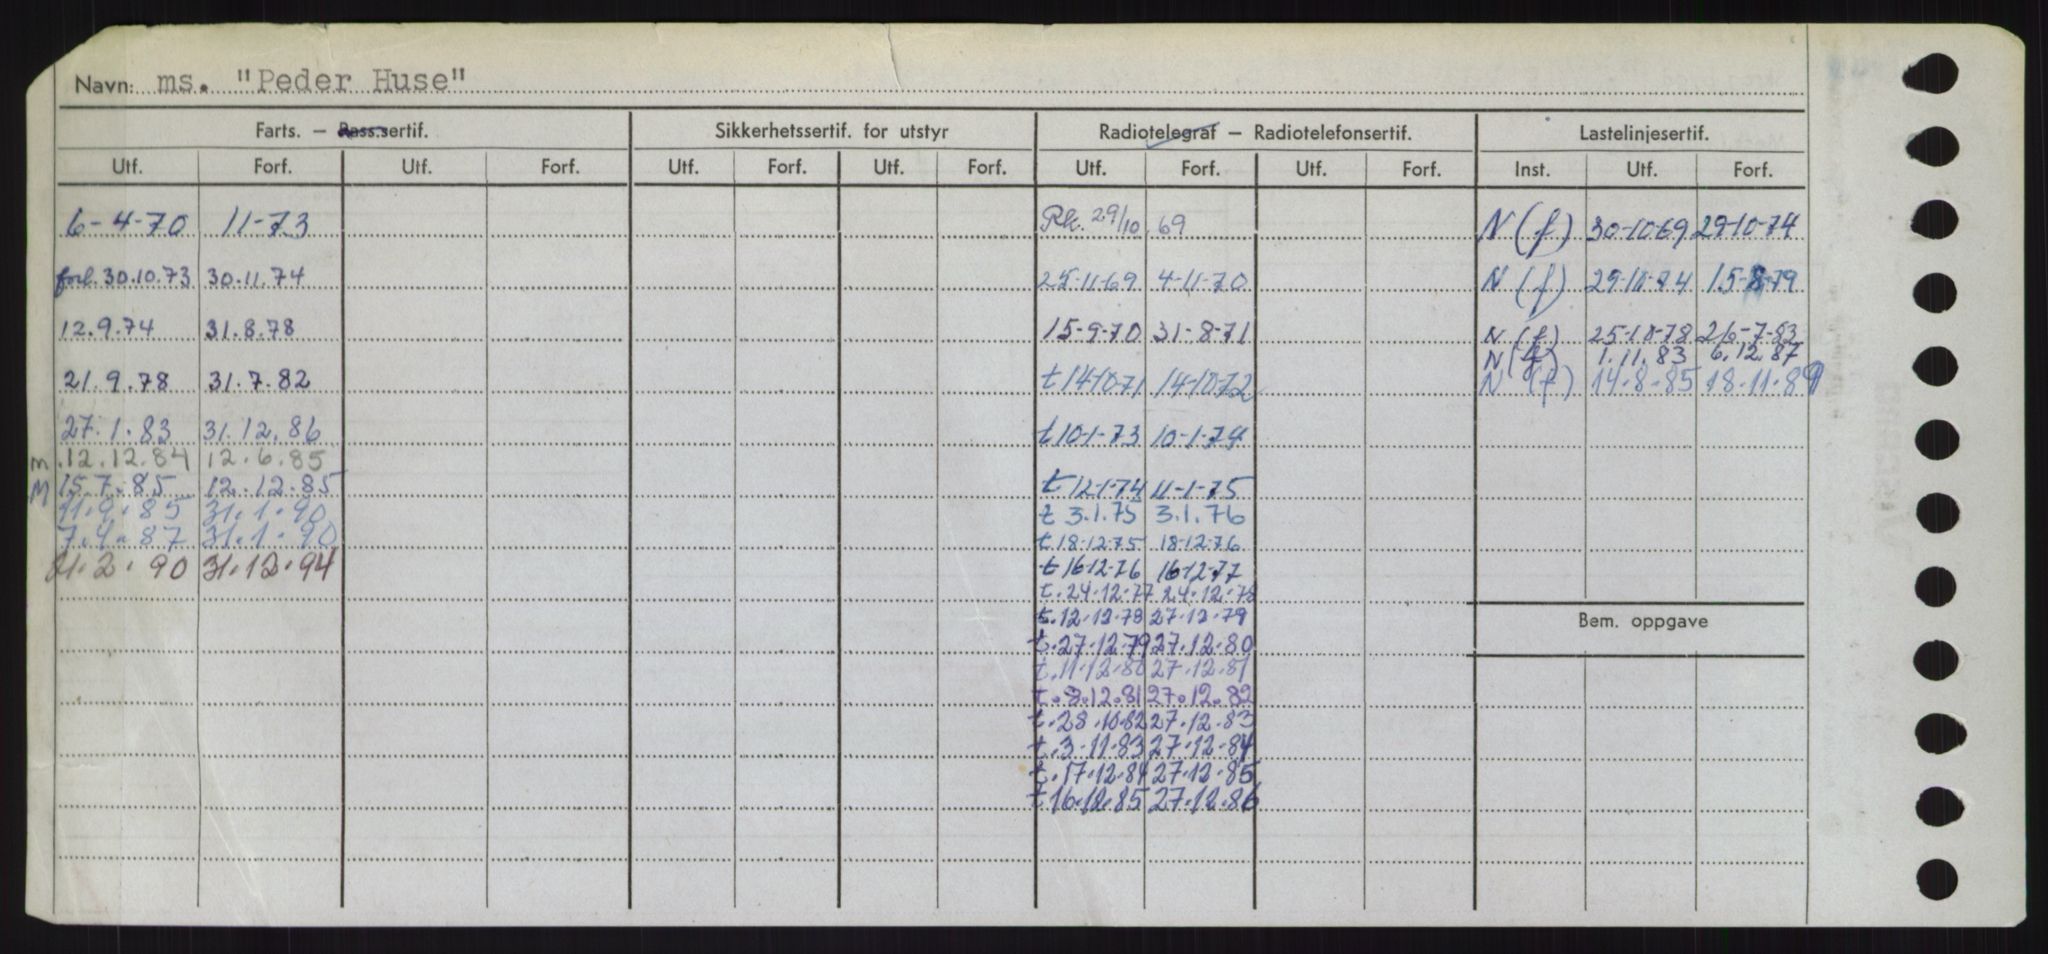 Navn: ms. "Peder Huse"
Farts. – Pass.sertif. Sikkerhetssertif. for utstyr Radiotelegraf – Radiotelefonsertif. Lastelinjesertif.
Utf. Forf. Utf. Forf. Utf. Forf. Utf. Forf. Utf. Forf. Utf. Forf. Inst. Utf. Forf.
6-4-70 11-73 Rk. 29/10 69 N (f) 30-10-69 29-10-74
forl. 30.10.73 30.11.74 25-11-69 4-11-70 N (f) 29-10-74 15-8-79
12.9.74 31.8.78 15-9-70 31-8-71 N (f) 25-10-78 26-7-83
N (f) 1.11.83 6.12.87
21.9.78 31.7.82 t 14-10-71 14-10-72 N (f) 14-8-85 18-11-89
27.1.83 31.12.86 t 10-1-73 10-1-74
m .12.12.84 12.6.85
M 15.7.85 12.12.85 t 12-1-74 11-1-75
11.9.85 31.1.90 t 3.1.75 3.1.76
7.4.87 31.1.90 t 18-12-75 18-12-76
21.2.90 31.12.94 t 16-12-76 16-12-77
t. 24.12.77 24.12.78
t. 12.12.78 27.12.79
t. 27.12.79 27.12.80
t. 11.12.80 27.12.81
t. 8.12.81 27.12.82
t. 28.10.82 27.12.83
t. 3.11.83 27.12.84
t. 17.12.84 27.12.85
t 16.12.85 27.12.86
Bem. oppgave